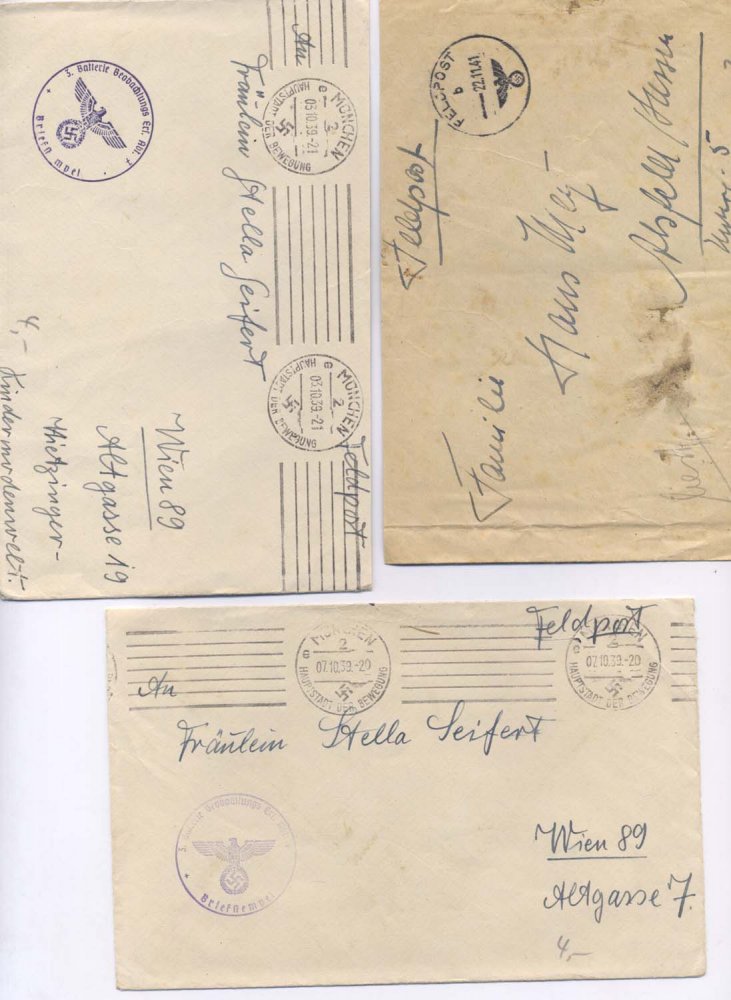 3. Batterie Beobachtungs Ers. Abt. 7
Briefstempel
An
Fräulein Stella Seifert
MÜNCHEN
2
03.10.39.-21
e
HAUPTSTADT DER BEWEGUNG
MÜNCHEN
2
03.10.39.-21
e
HAUPTSTADT DER BEWEGUNG
Feldpost
Wien 89
Altgasse 19
Hietzinger-
Kindermodenwelt.
4,-
FELDPOST
b
22.11.41
Feldpost
Familie
Hans
5
Feldpost
MÜNCHEN
2
07.10.39.-20
e
HAUPTSTADT DER BEWEGUNG
07.10.39.-20
e
HAUPTSTADT DER BEWEGUNG
An
Fräulein Stella Seifert
3. Batterie Beobachtungs Ers.
Briefstempel
Wien 89
Altgasse 7.
4,-